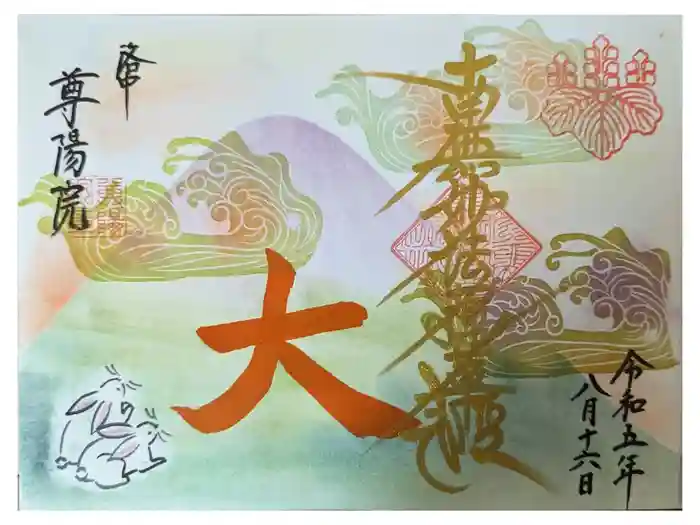 令和五年
八月十六日
南無妙法蓮華経
大
尊陽院